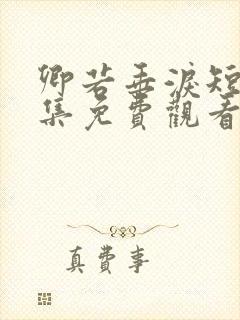 卿若垂淚短
集免費觀看
真費事